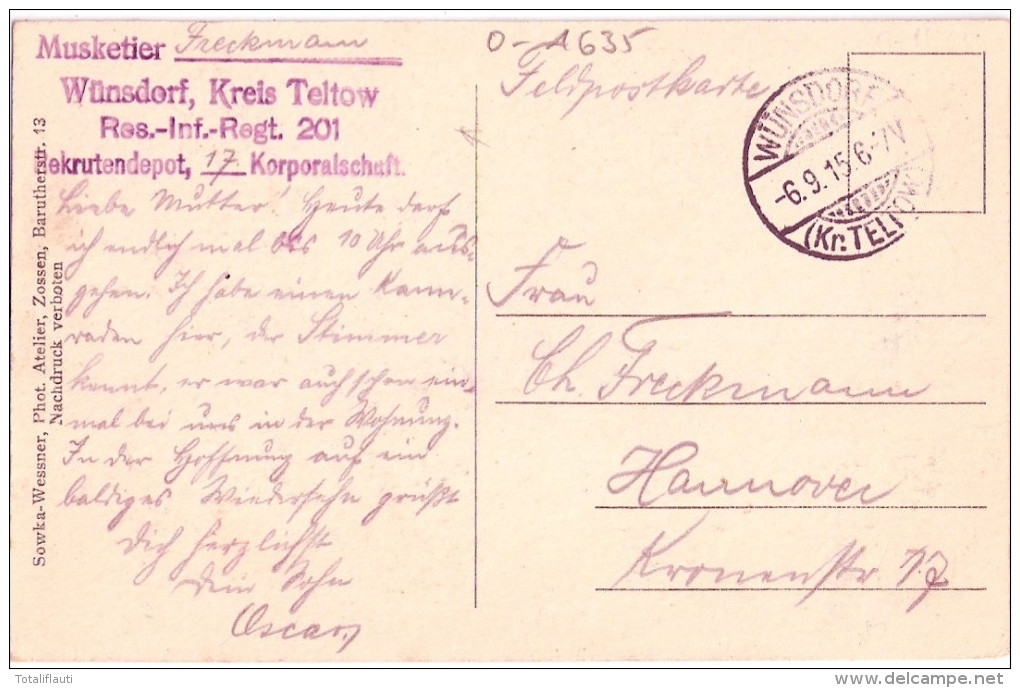 Musketier Freckmann
Wünsdorf, Kreis Teltow
Res.-Inf.-Regt. 201
ekrutendepot, 17. Korporalschaft.
Liebe Mutter! Heute darf
ich endlich mal bis 10 Uhr aus-
gehen. Ich habe einen Kam-
raden hier, der Stimmer
kennt, er war auch schon ein-
mal bei uns in der Wohnung.
In der Hoffnung auf ein
baldiges Wiedersehn grüßt
Dich herzlichst
Dein Sohn
Oscar
Sowka-Wessner, Phot. Atelier, Zossen, Barutherstr. 13
Nachdruck verboten
O-A635
Feldpostkarte
WÜNSDORF
-6.9.15.6-7V
(Kr. TELTOW)
Frau
Ch. Freckmann
Hannover
Kronenstr. 17
Totaliflauti
delcampe.net